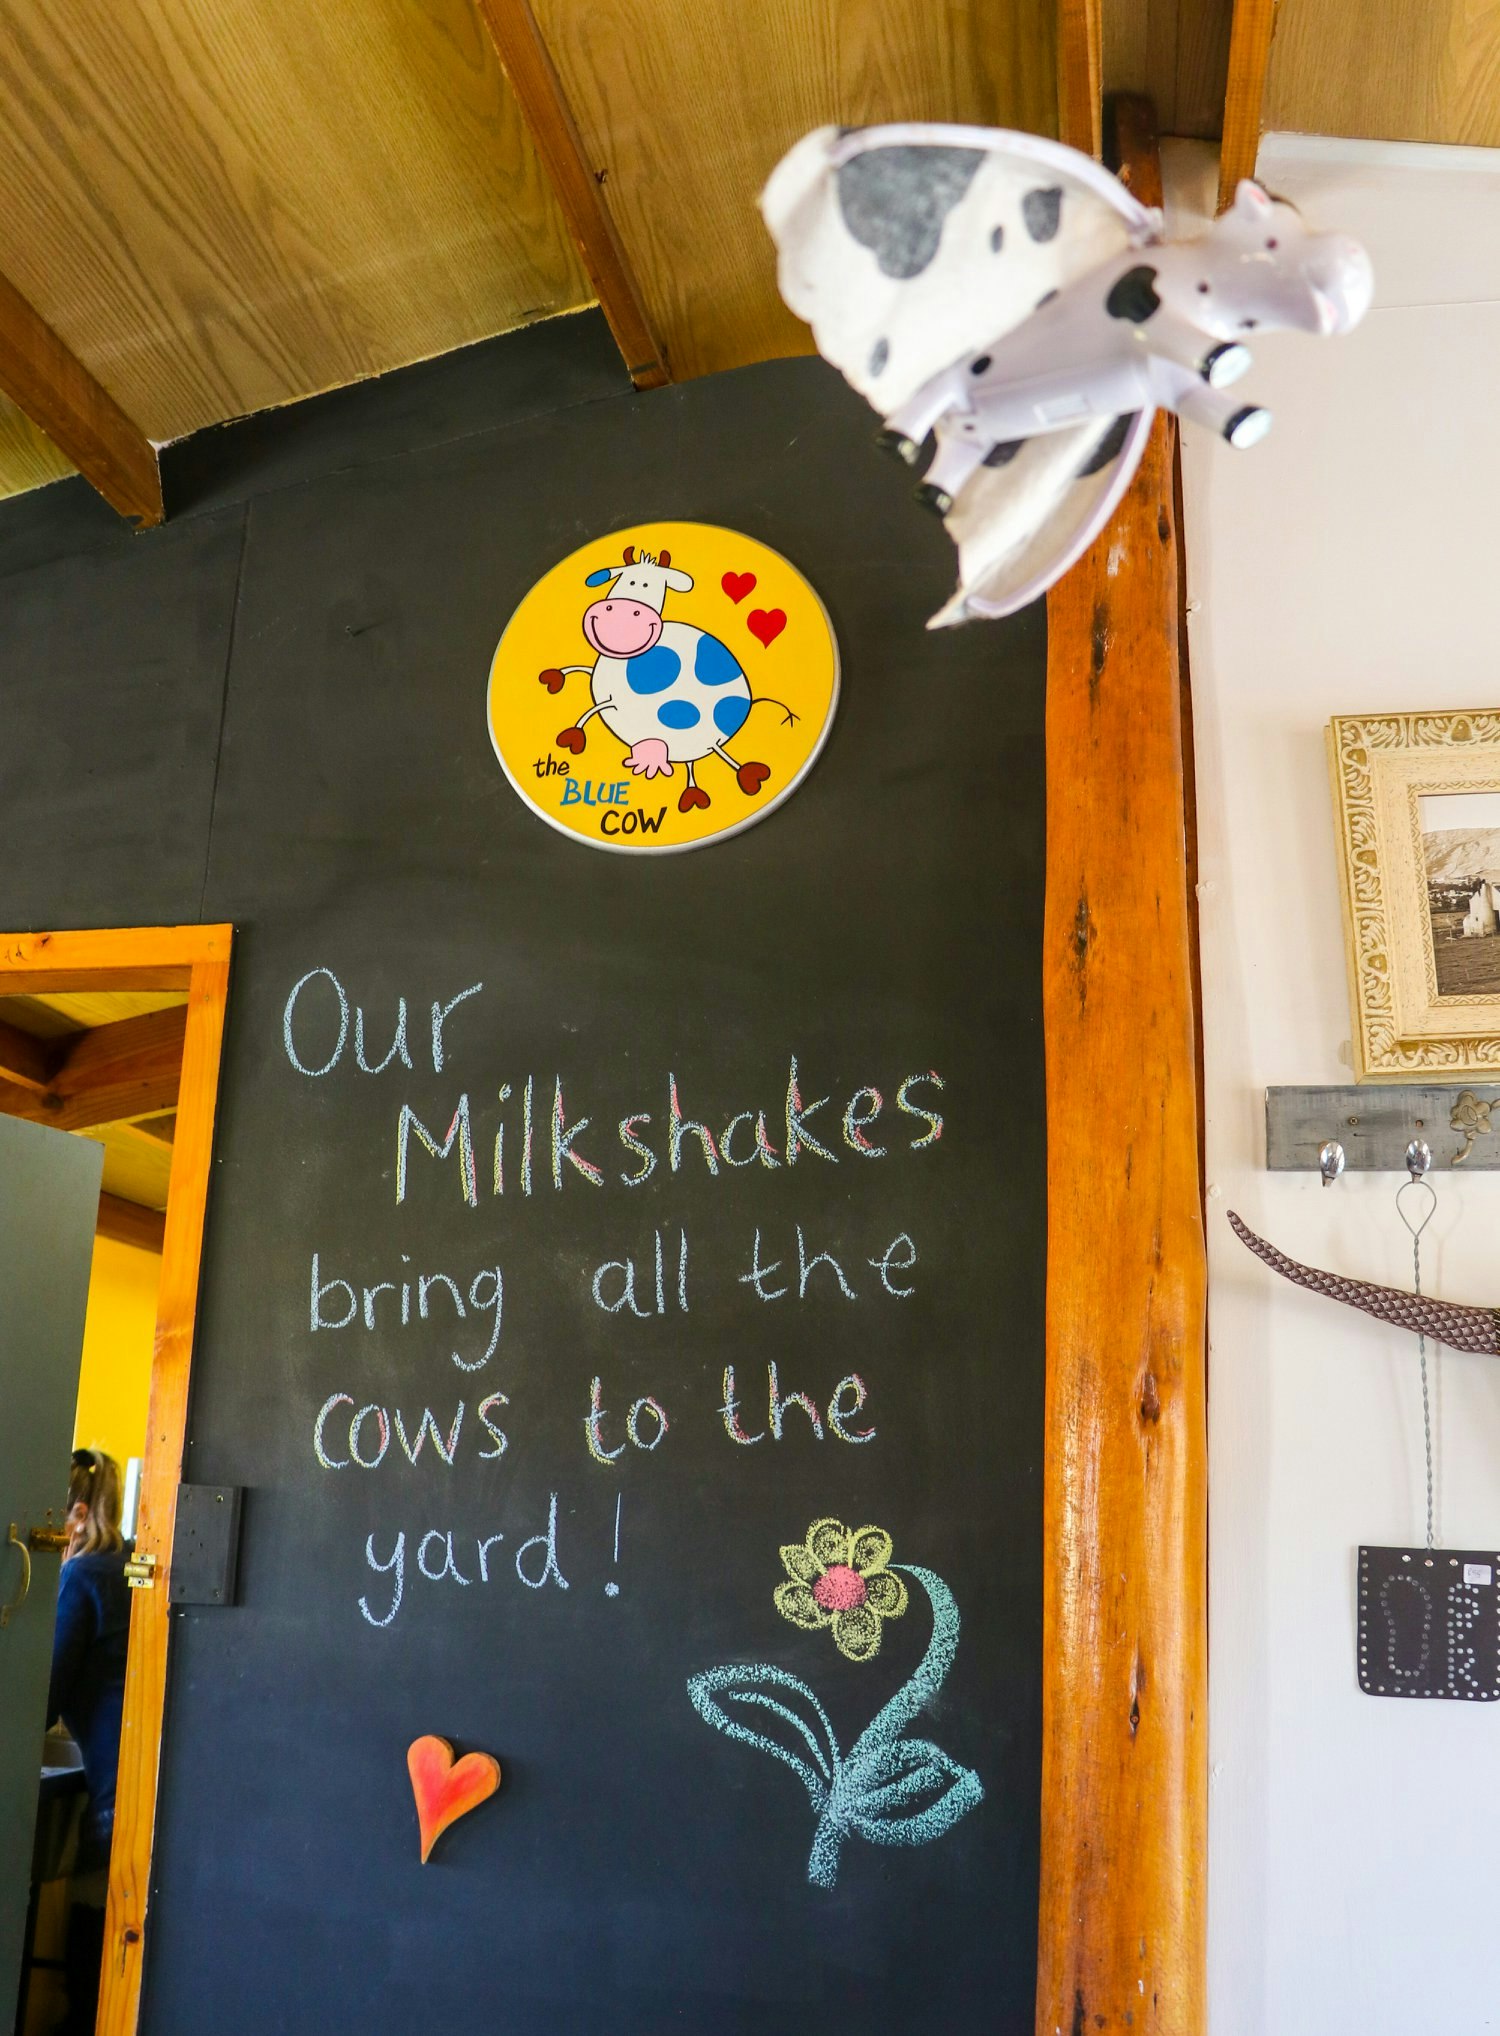 the
BLUE
COW
Our
Milkshakes
bring all the
cows to the
yard!